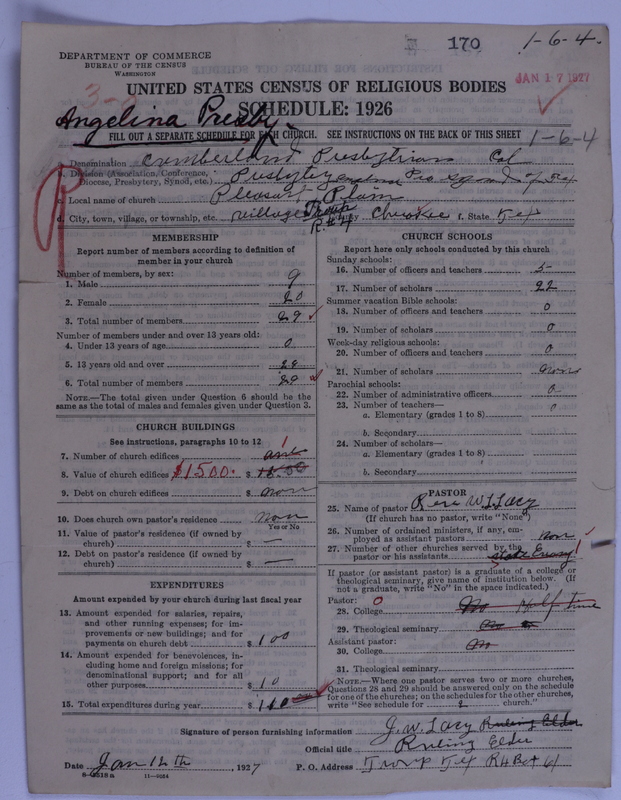 170 1-6-4.
DEPARTMENT OF COMMERCE
BUREAU OF THE CENSUS
WASHINGTON
JAN 17 1927
UNITED STATES CENSUS OF RELIGIOUS BODIES
SCHEDULE: 1926
Angelina Presby.
FILL OUT A SEPARATE SCHEDULE FOR EACH CHURCH. SEE INSTRUCTIONS ON THE BACK OF THIS SHEET
1-6-4
a. Denomination Cumberland Presbytrian Col
b. Division (Association, Conference, Diocese, Presbytery, Synod, etc.) Presbytery
c. Local name of church Pleasant Plain
d. City, town, village, or township, etc. village Troup R#4 County Cherokee f. State Tex
MEMBERSHIP
Report number of members according to definition of member in your church
Number of members, by sex:
1. Male 9
2. Female 20
3. Total number of members 29
Number of members under and over 13 years old:
4. Under 13 years of age 0
5. 13 years old and over 29
6. Total number of members 29
NOTE.—The total given under Question 6 should be the same as the total of males and females given under Question 3.
CHURCH BUILDINGS
See instructions, paragraphs 10 to 12
7. Number of church edifices one 1
8. Value of church edifices $1500. $ 15.00
9. Debt on church edifices $ non
10. Does church own pastor's residence non
Yes or No
11. Value of pastor's residence (if owned by church) $ —
12. Debt on pastor's residence (if owned by church) $ —
EXPENDITURES
Amount expended by your church during last fiscal year
13. Amount expended for salaries, repairs, and other running expenses; for improvements or new buildings; and for payments on church debt $ 100
14. Amount expended for benevolences, including home and foreign missions; for denominational support; and for all other purposes $ 10
15. Total expenditures during year $ 110
CHURCH SCHOOLS
Report here only schools conducted by this church
Sunday schools:
16. Number of officers and teachers 5
17. Number of scholars 22
Summer vacation Bible schools:
18. Number of officers and teachers 0
19. Number of scholars 0
Week-day religious schools:
20. Number of officers and teachers 0
21. Number of scholars none
Parochial schools:
22. Number of administrative officers 0
23. Number of teachers— 0
a. Elementary (grades 1 to 8)
b. Secondary
24. Number of scholars—
a. Elementary (grades 1 to 8)
b. Secondary
PASTOR
25. Name of pastor Rev W L Lacy
(If church has no pastor, write "None")
26. Number of ordained ministers, if any, employed as assistant pastors None
27. Number of other churches served by the pastor or his assistants 1
If pastor (or assistant pastor) is a graduate of a college or theological seminary, give name of institution below. (If not a graduate, write "No" in the space indicated.)
Pastor: 0
28. College No Half time
29. Theological seminary No
Assistant pastor:
30. College No
31. Theological seminary
NOTE.—Where one pastor serves two or more churches, Questions 28 and 29 should be answered only on the schedule for one of the churches; on the schedules for the other churches, write "See schedule for 2 church."
Signature of person furnishing information J. W. Lacy Ruling Elder
Official title Ruling Elder
Date Jan 12th, 1927 P. O. Address Troup Tex R4 Box 61
8-5518a 11-9064